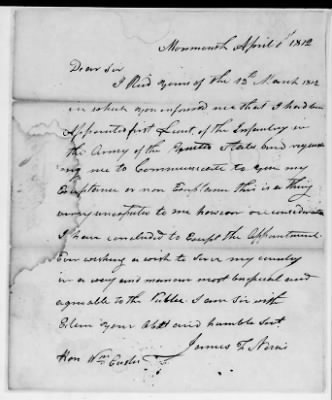 Monmouth April 1st 1812
Dear Sir
I Recd yours of the 12th March 1812
in which you informed me that I had been
Appointed first Lieut. of the Infantry in
the Army of the United States and requesting
me to Communicate to you my
Exceptance or non Exceptance this is a thing
very unexpected to me however on consideration
I have concluded to Except the Appointment
Ever wishing a wish to serve my country
in a way and manner most and
agreeable to the Publick I am Sir with
Esteem your Obt and humble Servt.
James
Hon Wm Eustis